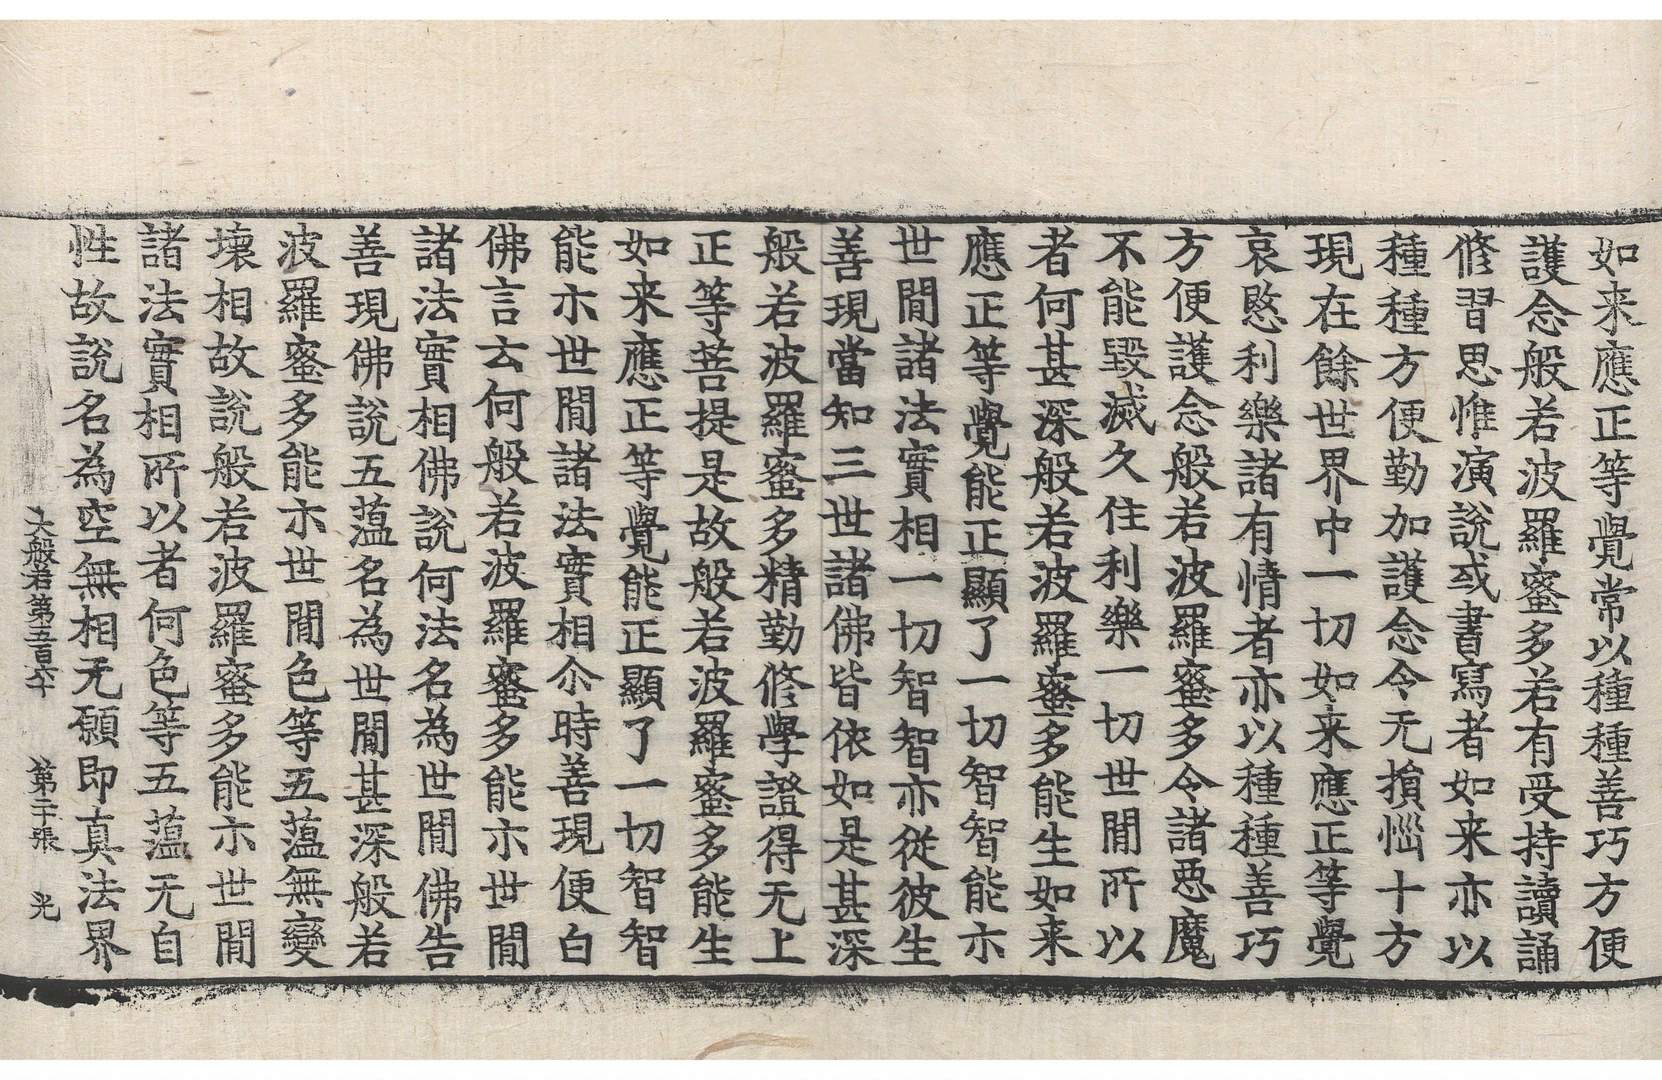 如来應正等覺常以種種善巧方便
護念般若波羅蜜多若有受持讀誦
修習思惟演說或書寫者如来亦以
種種方便勤加護念令无損惱十方
現在餘世界中一切如来應正等覺
哀愍利樂諸有情者亦以種種善巧
方便護念般若波羅蜜多令諸惡魔
不能毀滅久住利樂一切世閒所以
者何甚深般若波羅蜜多能生如来
應正等覺能正顯了一切智智能示
世閒諸法實相一切智智亦從彼生
善現當知三世諸佛皆依如是甚深
般若波羅蜜多精勤修學證得无上
正等菩提是故般若波羅蜜多能生
如来應正等覺能正顯了一切智智
能示世閒諸法實相尒時善現便白
佛言云何般若波羅蜜多能示世閒
諸法實相佛說何法名為世閒佛告
善現佛說五蕰名為世閒甚深般若
波羅蜜多能示世閒色等五蕰無變
壞相故說般若波羅蜜多能示世閒
諸法實相所以者何色等五蕰无自
性故說名為空無相无願即真法界
大般若第五百六十 第二十張 光